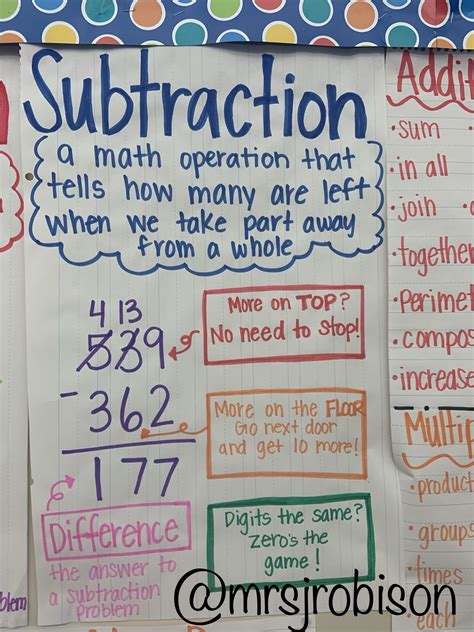 Subtraction
a math operation that
tells how many are left
when we take part away
from a whole
4 13
539
- 362
177
More on TOP?
No need to Stop!
More on the FLOOR
Go next door
and get 10 more!
Digits the same?
zero's the
game!
Difference
the answer to
a subtraction
problem
Addi
• sum
• in all
• join
• together
• Perimet
• compos
• increase
Multip
• product
• groups
• times
• each
blem
@mrsjrobison